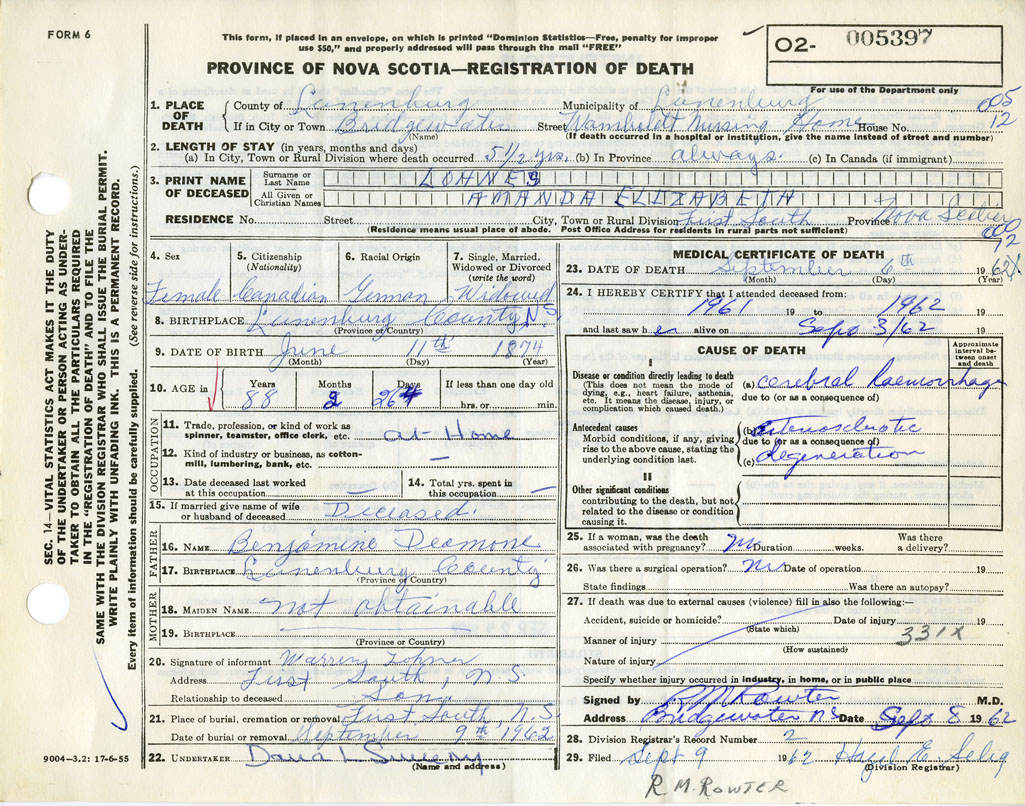 FORM 6
This form, if placed in an envelope, on which is printed "Dominion Statistics—Free, penalty for improper
use $50," and properly addressed will pass through the mail "FREE"
PROVINCE OF NOVA SCOTIA—REGISTRATION OF DEATH
O2- 005397
For use of the Department only
005
12
1. PLACE OF DEATH { County of Lunenburg Municipality of Lunenburg
If in City or Town Bridgewater Street Wambheldt Nursing Home House No.
(Name) (If death occurred in a hospital or institution, give the name instead of street and number)
2. LENGTH OF STAY (in years, months and days)
(a) In City, Town or Rural Division where death occurred 5 1/2 yrs. (b) In Province always. (c) In Canada (if immigrant)
3. PRINT NAME OF DECEASED
Surname or Last Name LOHNES
All Given or Christian Names AMANDA ELIZABETH
RESIDENCE No. Street City, Town or Rural Division First South Province Nova Scotia
(Residence means usual place of abode. Post Office Address for residents in rural parts not sufficient)
000
12
4. Sex 5. Citizenship (Nationality) 6. Racial Origin 7. Single, Married, Widowed or Divorced (write the word)
Female Canadian German Widowed
8. BIRTHPLACE Lunenburg County, N.S.
(Province or Country)
9. DATE OF BIRTH June 11th 1874
(Month) (Day) (Year)
10. AGE in Years Months Days If less than one day old
88 2 26 hrs. or min.
OCCUPATION
11. Trade, profession, or kind of work as spinner, teamster, office clerk, etc. at Home
12. Kind of industry or business, as cotton-mill, lumbering, bank, etc. —
13. Date deceased last worked at this occupation — 14. Total yrs. spent in this occupation —
15. If married give name of wife or husband of deceased Deceased.
FATHER
16. NAME Benjamine Deamone
17. BIRTHPLACE Lunenburg County
(Province or Country)
MOTHER
18. MAIDEN NAME not obtainable
19. BIRTHPLACE
(Province or Country)
20. Signature of informant Warren Lohnes
Address First South, N.S.
Relationship to deceased Son
21. Place of burial, cremation or removal First South, N.S.
Date of burial or removal September 9th 1962
22. UNDERTAKER David L Sweeny
(Name and address)
MEDICAL CERTIFICATE OF DEATH
23. DATE OF DEATH September 6th 1962
(Month) (Day) (Year)
24. I HEREBY CERTIFY that I attended deceased from:
1961 19 to 1962 19
and last saw her alive on Sept 3/62 19
CAUSE OF DEATH
Approximate interval between onset and death
I
Disease or condition directly leading to death
(This does not mean the mode of dying, e.g., heart failure, asthenia, etc. It means the disease, injury, or complication which caused death.)
(a) cerebral haemorrhage
due to (or as a consequence of)
Antecedent causes
Morbid conditions, if any, giving rise to the above cause, stating the underlying condition last.
(b) arteriosclerotic
due to (or as a consequence of)
(c) degeneration
II
Other significant conditions
contributing to the death, but not related to the disease or condition causing it.
25. If a woman, was the death associated with pregnancy? No Duration weeks. Was there a delivery?
26. Was there a surgical operation? No Date of operation 19
State findings Was there an autopsy?
27. If death was due to external causes (violence) fill in also the following:—
Accident, suicide or homicide? Date of injury 19
(State which)
Manner of injury 331X
(How sustained)
Nature of injury
Specify whether injury occurred in industry, in home, or in public place
Signed by R M Rowter M.D.
Address Bridgewater NS Date Sept 8 1962
28. Division Registrar's Record Number 2
29. Filed Sept 9 1962 Hazel E. Selig
(Division Registrar)
R.M. ROWTER
SEC. 14—VITAL STATISTICS ACT MAKES IT THE DUTY
OF THE UNDERTAKER OR PERSON ACTING AS UNDER-
TAKER TO OBTAIN ALL THE PARTICULARS REQUIRED
IN THE "REGISTRATION OF DEATH" AND TO FILE THE
SAME WITH THE DIVISION REGISTRAR WHO SHALL ISSUE THE BURIAL PERMIT.
WRITE PLAINLY WITH UNFADING INK. THIS IS A PERMANENT RECORD.
Every item of information should be carefully supplied. (See reverse side for instructions.)
9004—3.2: 17-6-55